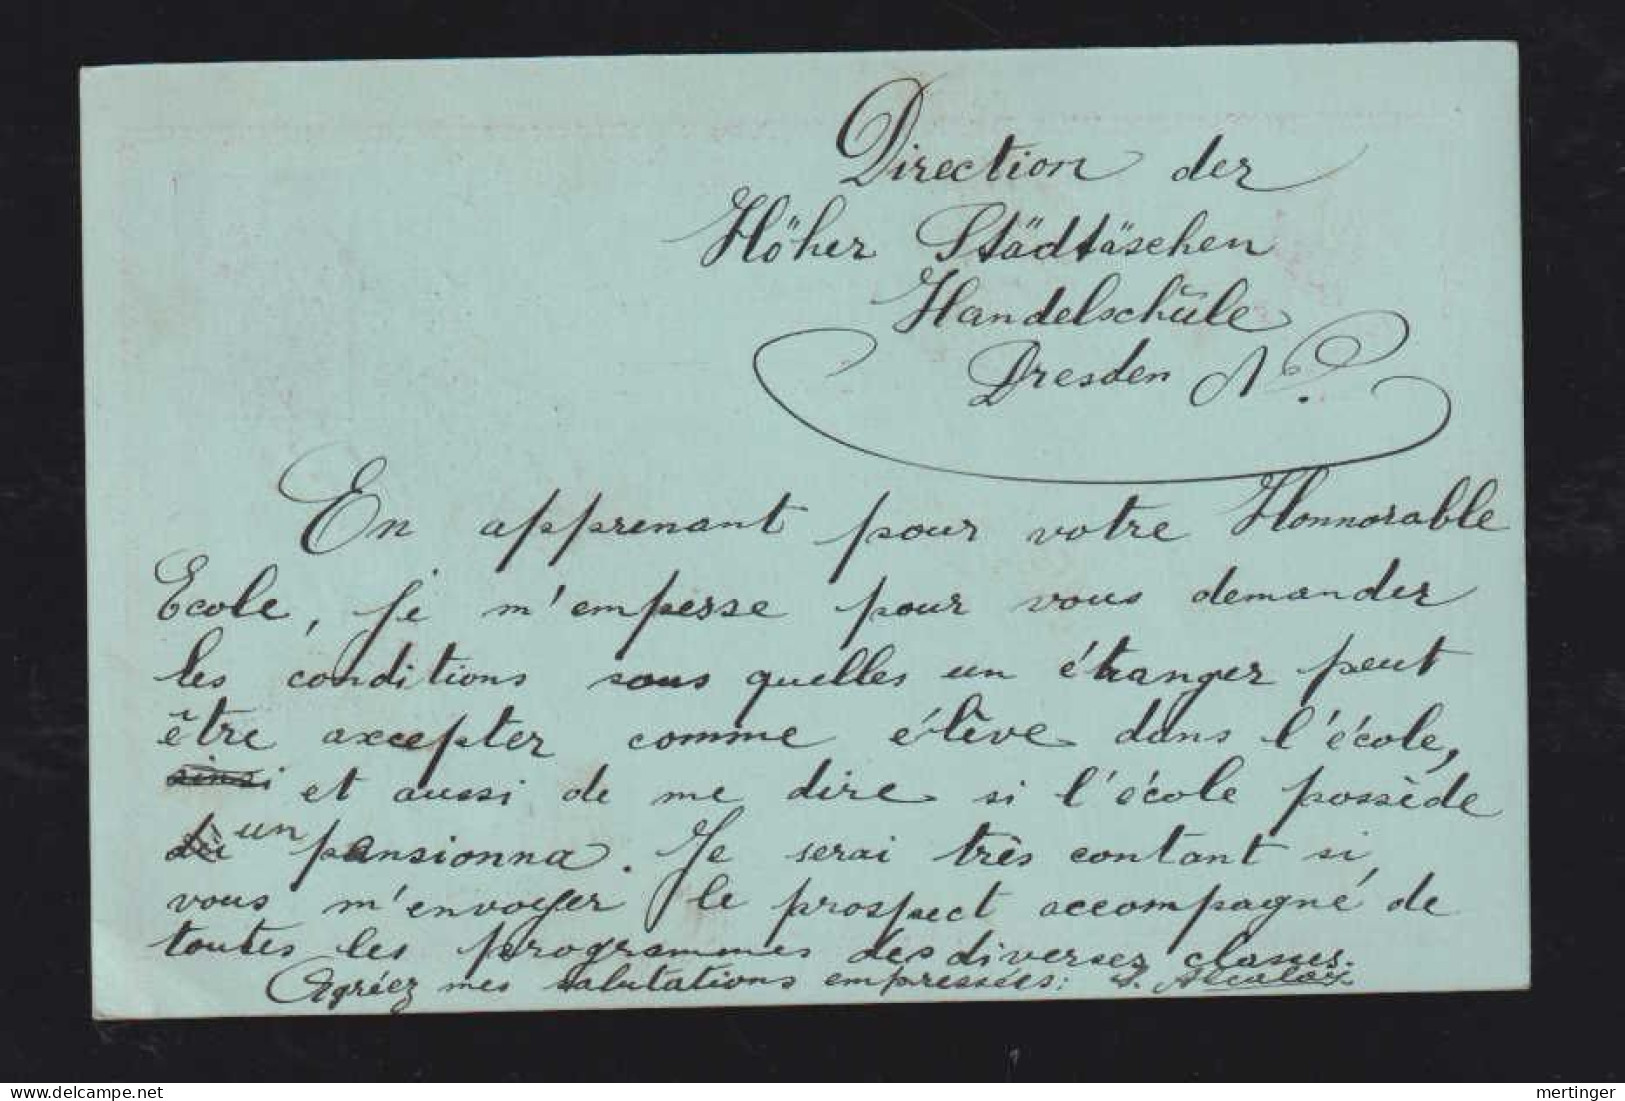 Direction der
Höher Städtäschen
Handelschŭle
Dresden N.
En apprenant pour votre Honnorable
Ecole, je m'emperse pour vous demander
les conditions sous quelles un étranger peut
être axcepter comme élève dans l'école,
et aussi de me dire si l'école possède
un pensionna. Je serai très contant si
vous m'envoyer le prospect accompagné de
toutes les programmes des diverses classes.
Agréez mes salutations empressées:
mertinger
www.delcampe.net